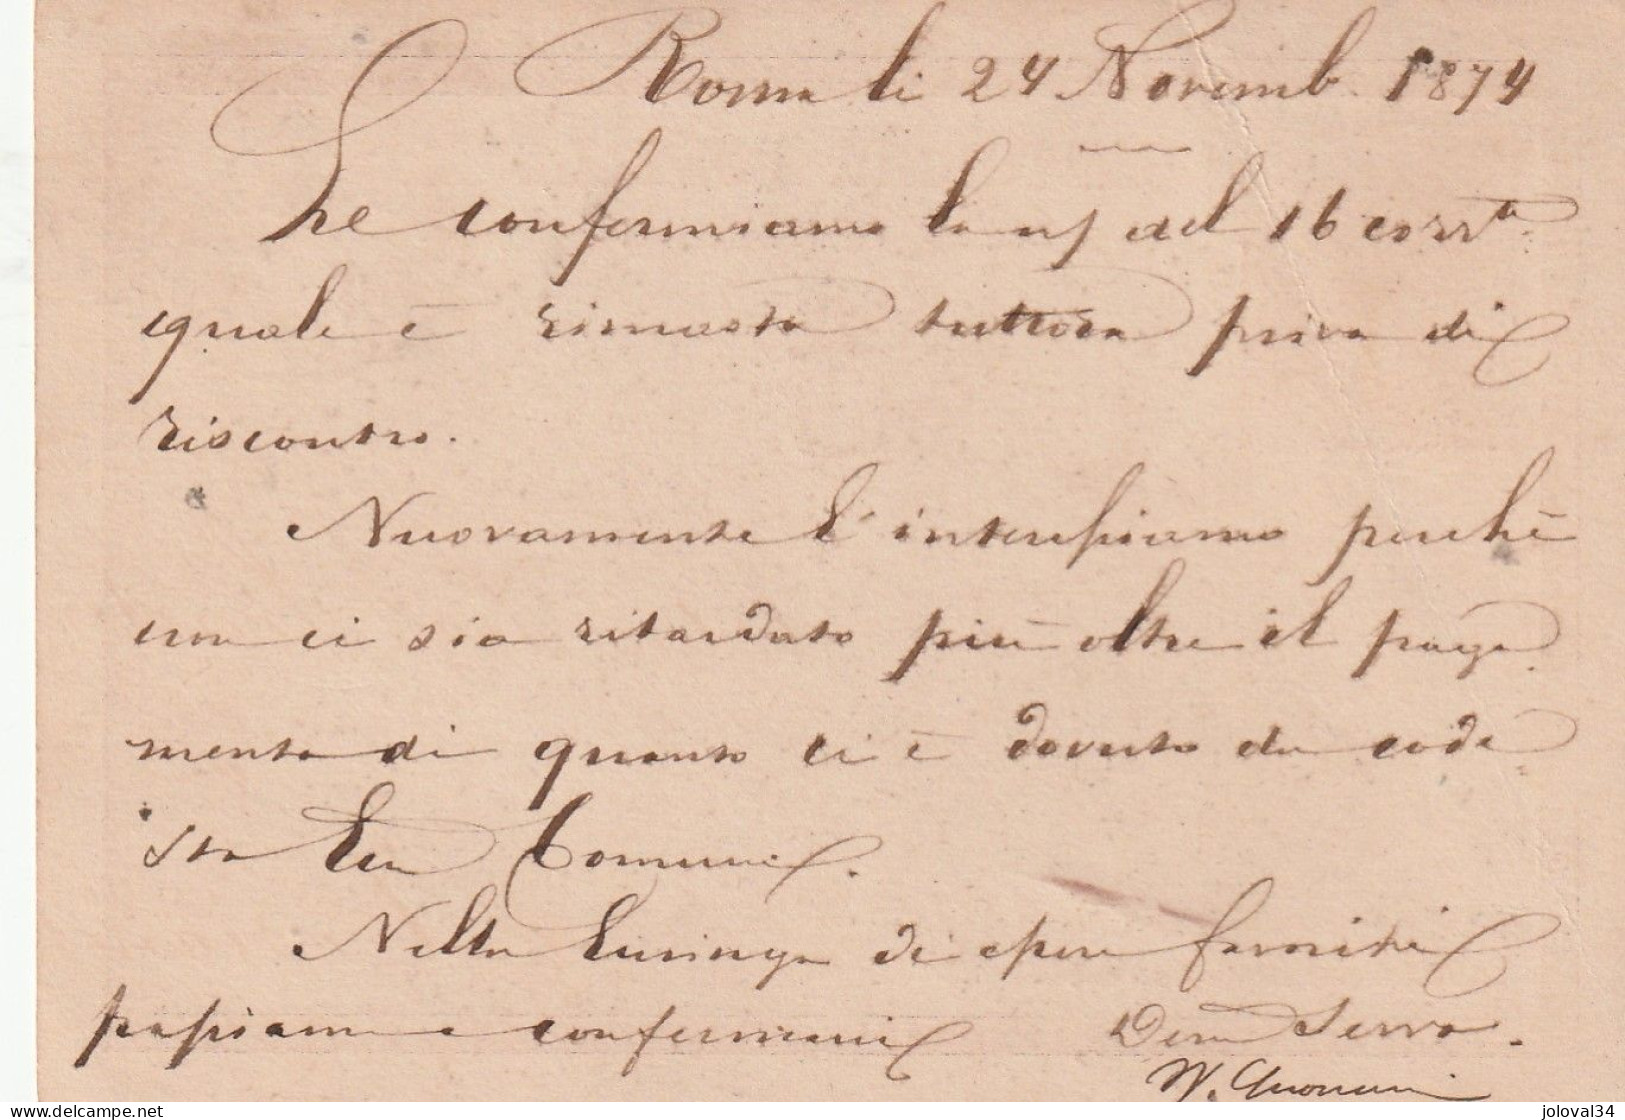 Roma li 24 Novemb. 1874
Le confermiamo la ns/ del 16 corr.te
quale è rimasta tuttora priva di
riscontro.
Nuovamente l'interessiamo perchè
non ci sia ritardato più oltre il paga
mento di quanto ci è dovuto da code
sta Comune.
Nella lusinga di esser favoriti
passiamo a confermarci Dev. Servo.
joloval34